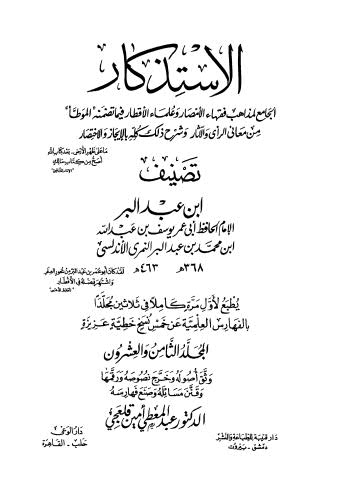 الاستذكار
الجامع لمذاهب فقهاء الأمصار وعلماء الأقطار فيما تضمنه الموطأ
من معاني الرأي والآثار وشرح ذلك كله بالإيجاز والاختصار
ما على ظهر الأرض - بعد كتاب الله -
أصح من كتاب مالك
تصنيف
ابن عبد البر
الإمام الحافظ أبي عمر يوسف بن عبد الله
ابن محمد بن عبد البر النمري الأندلسي
٣٦٨ هـ ٤٦٣ هـ
يطبع لأول مرة كاملا في ثلاثين مجلدا
بالفهارس العلمية عن خمس نسخ خطية عزيزة
المجلد الثامن والعشرون
وثق أصوله وخرج نصوصه ورقمها
وقنن مسائله وصنع فهارسه
الدكتور عبد المعطي أمين قلعجي
دار قتيبة للطباعة والنشر
دمشق - بيروت
دار الوعي
حلب - القاهرة